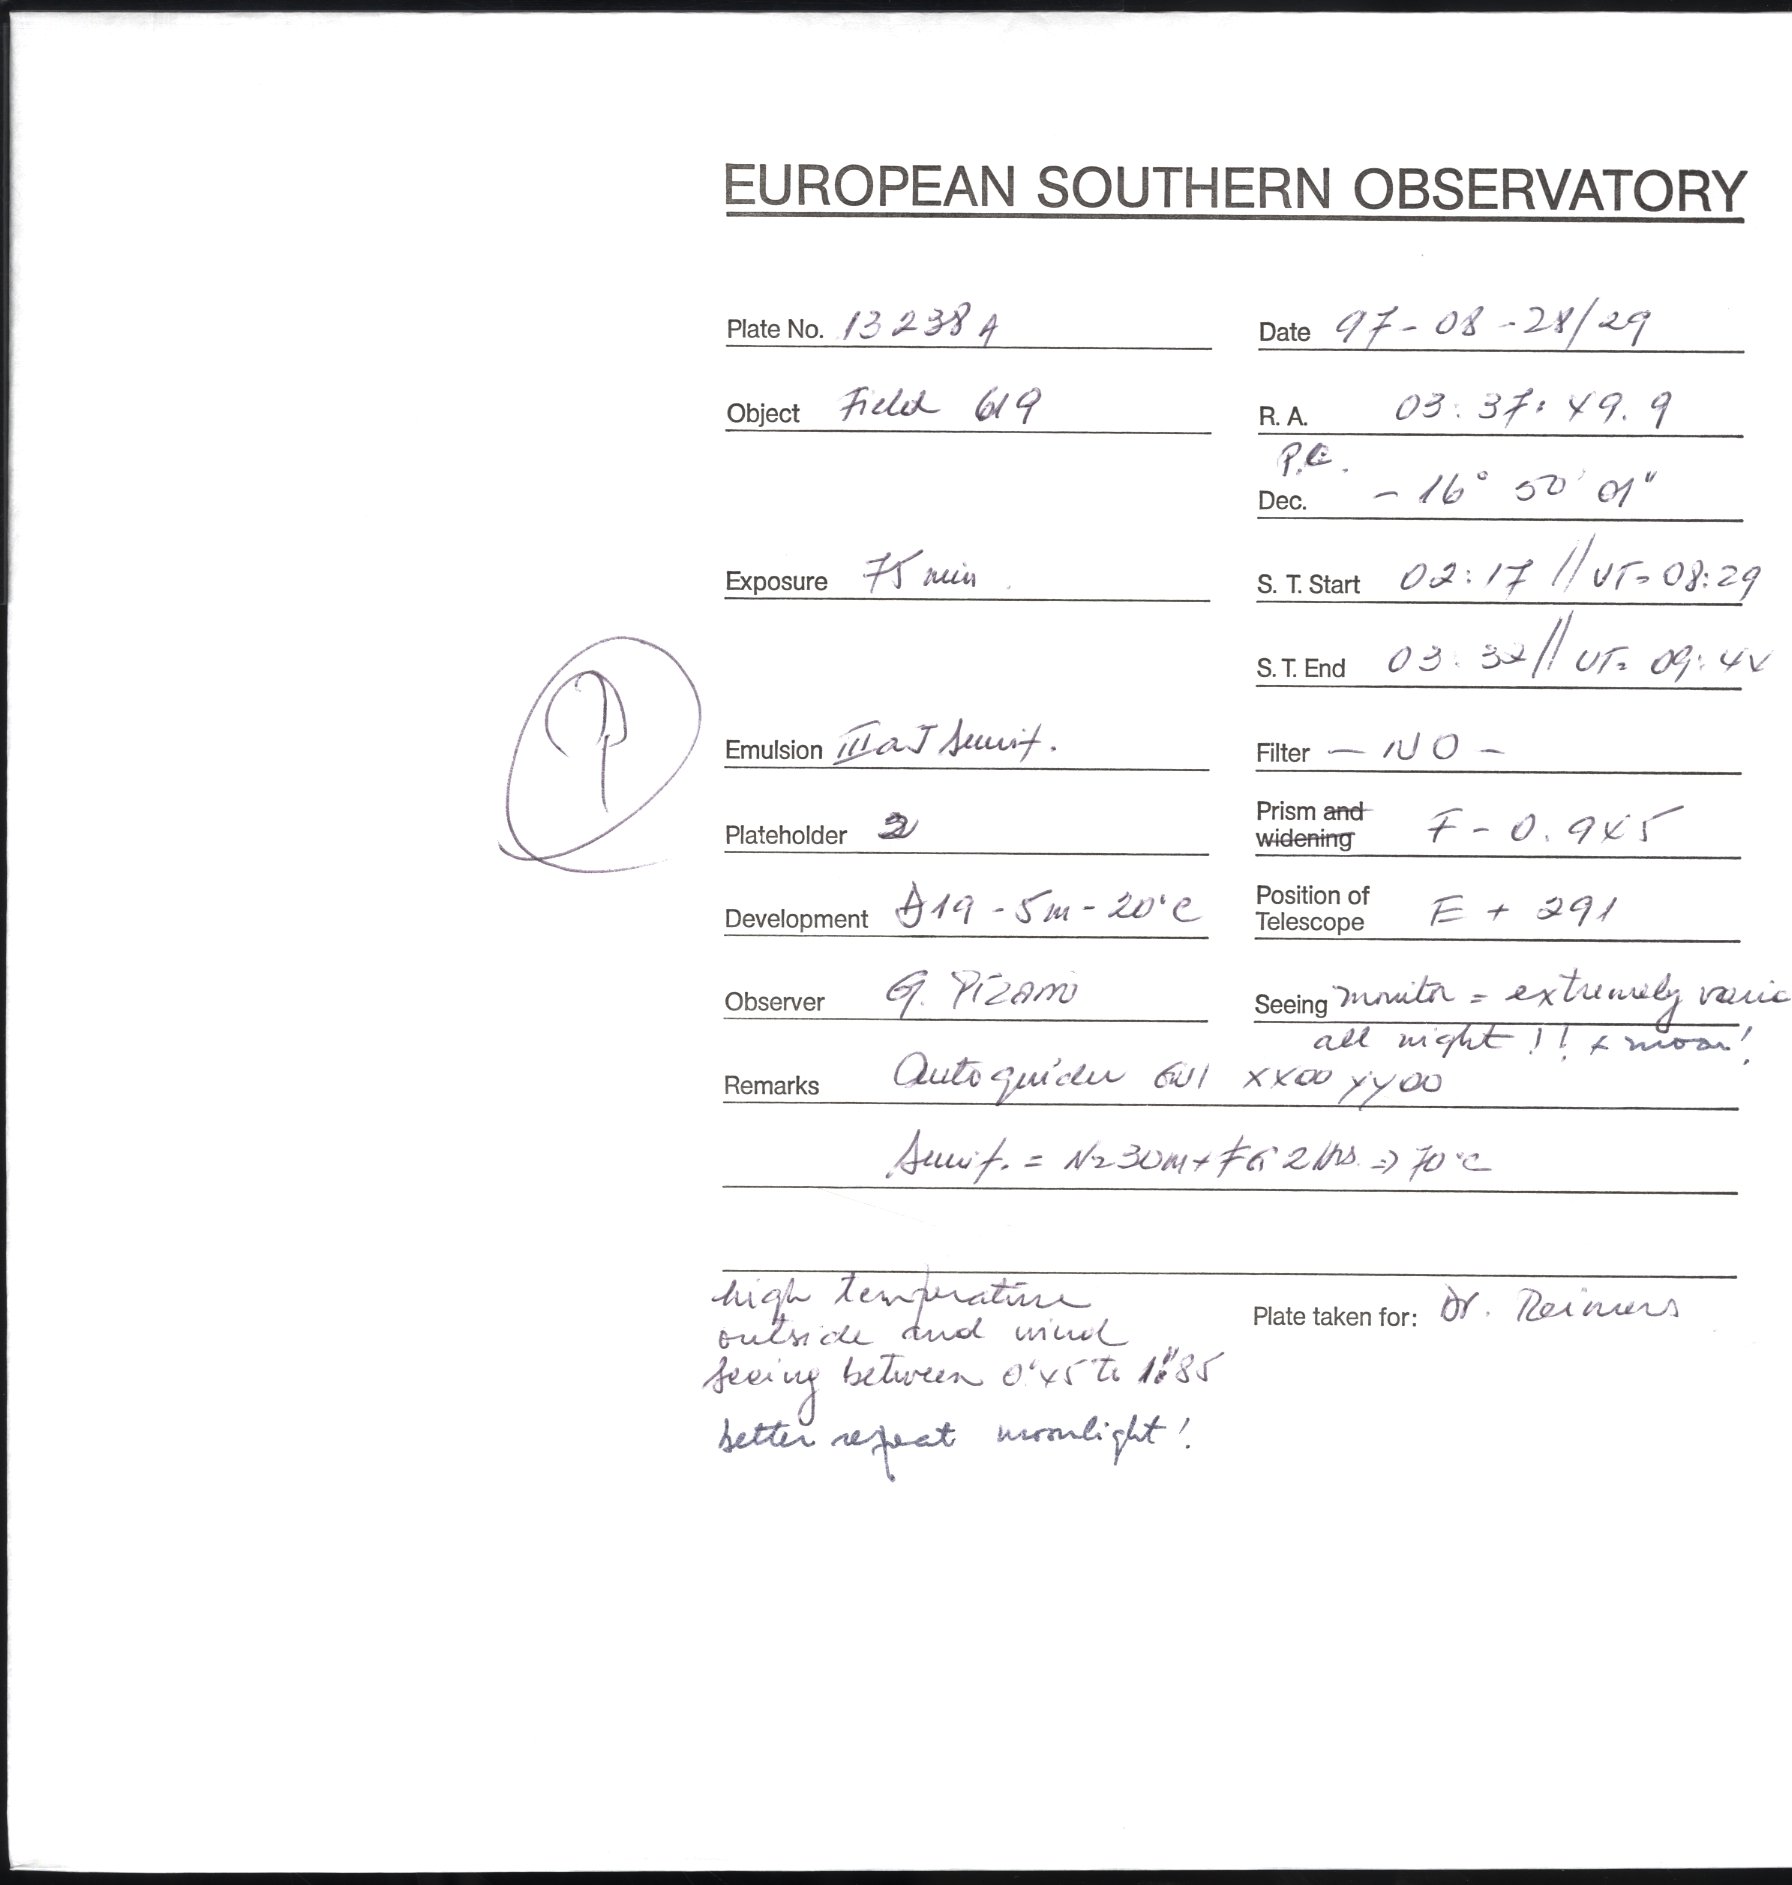 EUROPEAN SOUTHERN OBSERVATORY
Plate No. 13238A Date 97-08-28/29
Object Field 619 R. A. 03:37:49.9
P.E.
Dec. -16° 50' 01"
Exposure 75 min. S. T. Start 02:17 // UT=08:29
S. T. End 03:32 // UT=09:44
Emulsion III a J Sensit. Filter - NO -
Plateholder 2 Prism and widening F-0.945
Development D19-5m-20°C Position of Telescope E + 291
Observer G. Pizarro Seeing monitor = extremely varia
all night !! + moon!
Remarks Autoguider GU1 XX00 YY00
Sensit. = N2 30m + FG 2hrs. => 70°C
high temperature
outside and wind
Plate taken for: Dr. Reimers
seeing between 0"45 to 1"85
better repeat moonlight!